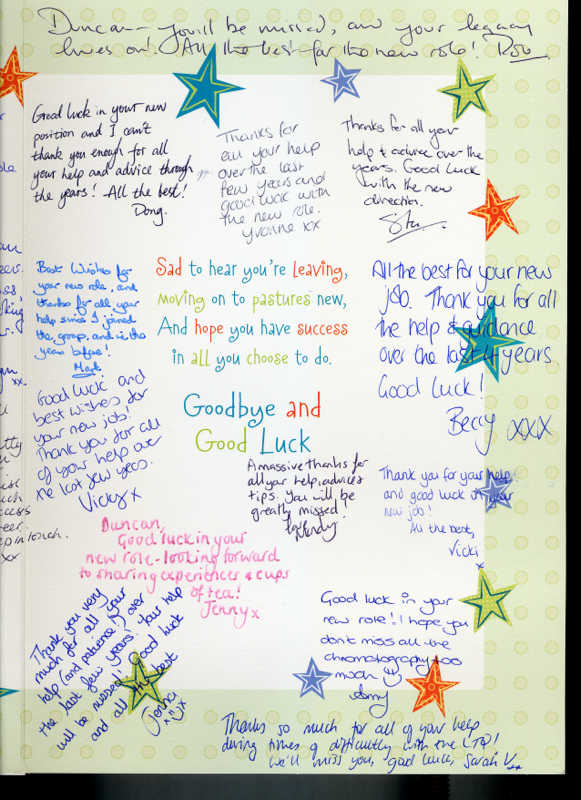 Duncan - you'll be missed, and your legacy
lives on! All the best for the new role! Rob
Good luck in your new
position and I can't
thank you enough for all
your help and advice through
the years! All the best!
Doug.
Thanks for
all your help
over the last
few years and
good luck with
the new role.
Yvonne xx
Thanks for all your
help & advice over the
years. Good Luck
with the new
direction.
Best Wishes for
your new role, and
thanks for all your
help since I joined
the group, and in the
years before!
Mark
Sad to hear you're leaving,
moving on to pastures new,
And hope you have success
in all you choose to do.
Goodbye and
Good Luck
All the best for your new
job. Thank you for all
the help & guidance
over the last 4 years.
Good Luck!
Beccy xxx
Good luck and
best wishes for
your new job!
Thank you for all
of your help over
the last few years.
Vicky x
A massive thanks for
all your help, advice &
tips. You will be
greatly missed!
Wendy
Thank you for your help
and good luck in your
new job!
All the best,
Vicki
x
Duncan,
Good luck in your
new role - looking forward
to sharing experiences & cups
of tea!
Jenny x
Thank you very
much for all your
help (and patience!) over
the last few years. Your help
will be missed! Good luck
and all the best
Jenna
xxx
Good luck in your
new role! I hope you
don't miss all the
chromatography too
much
Amy
Thanks so much for all of your help
during times of difficulty with the LTQ!
We'll miss you, good luck, Sarah V xx
in touch.